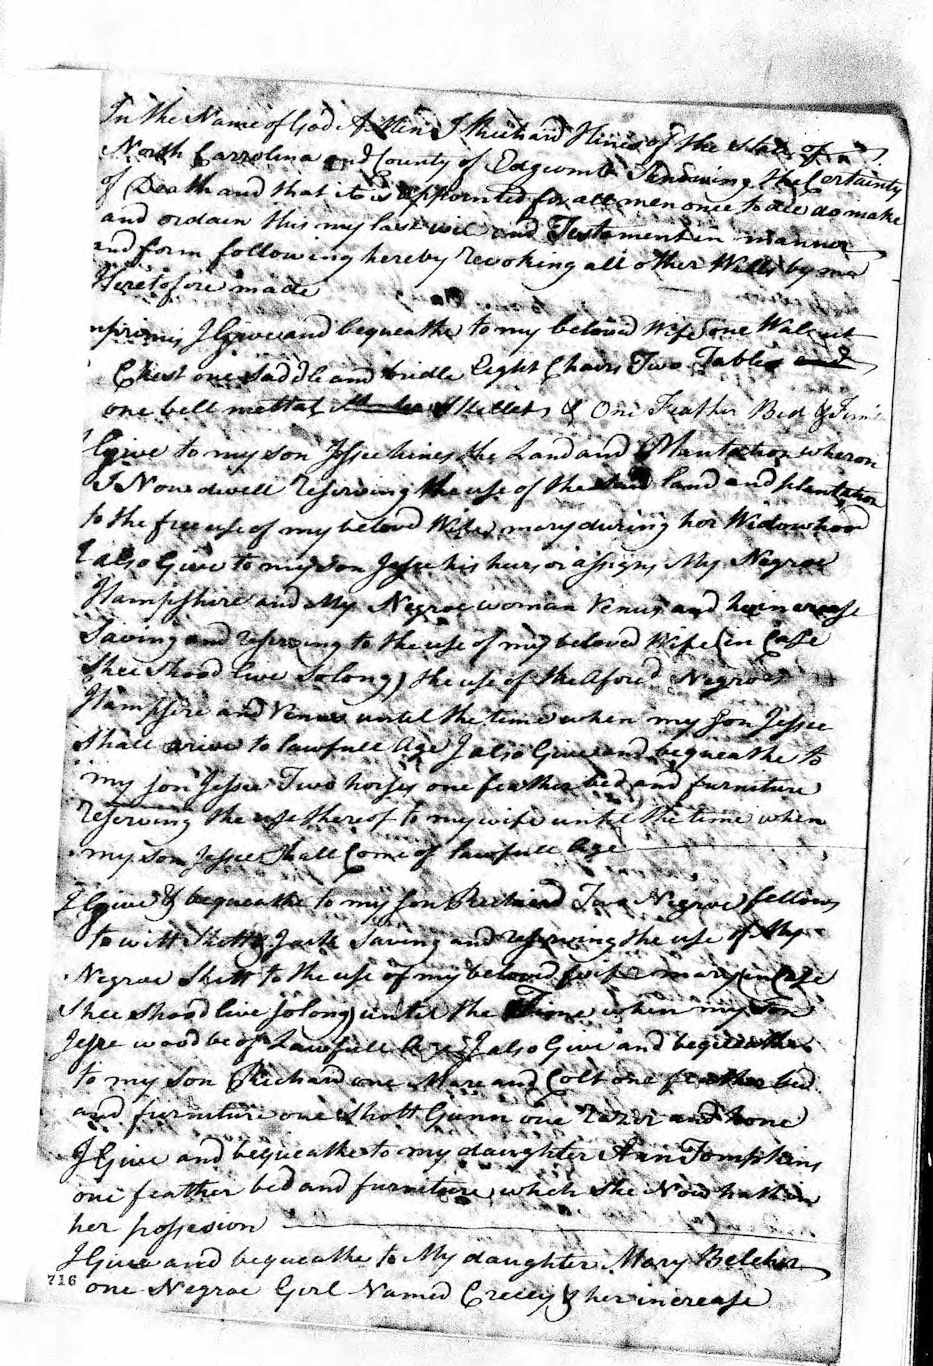 In the Name of God A Men I Richard Hines of the State of
North Carrolina and County of Edgcomb Knowing the Certainty
of Death and that it is appointed for all men once to die do make
and ordain this my last will and Testament in manner
and form following hereby revoking all other Wills by me
Heretofore made
mprimis I Give and bequeathe to my beloved Wife one Walnut
Chest one Saddle and bridle Eight Chairs Two Tables and
one bell mettal Skillet & One Feather Bed &
I Give to my son Jessee hines the Land and Plantation wheron
I Now dwell reserving the use of the land and plantation
to the free use of my beloved Wife mary during her Widowhood
I also Give to my son Jessee his heirs or assigns My Negroe
Hampshire and My Negroe woman Venus and her increase
Saving and reserving to the use of my beloved Wife (in Case
Shee Shood live So long) the use of the Afore'd Negroes
Hampsire and Venus until the time when my Son Jessee
Shall arive to lawfull Age I also Give and bequeathe to
my son Jessee Two horses one feather bed and furniture
reserving the use thereof to my wife until the time when
my son Jessee Shall Come of lawfull Age
I Give & bequeathe to my son Richard Two Negroe fellows
to witt Shott & Jack Saving and reserving the use of My
Negroe Shott to the use of my beloved wife mary (in Case
Shee Shood live So long) until the Time when my Son
Jesse wood be of Lawfull Age I also Give and bequeathe
to my son Richard one Mare and Colt one feather bed
and furniture one Shott Gunn one razor and hone
I Give and bequeathe to my daughter Ann Tompkins
one feather bed and furniture which She Now hath in
her possesion
I Give and bequeathe to My daughter Mary Belcher
one Negroe Girl Named Creecy & her increase
716